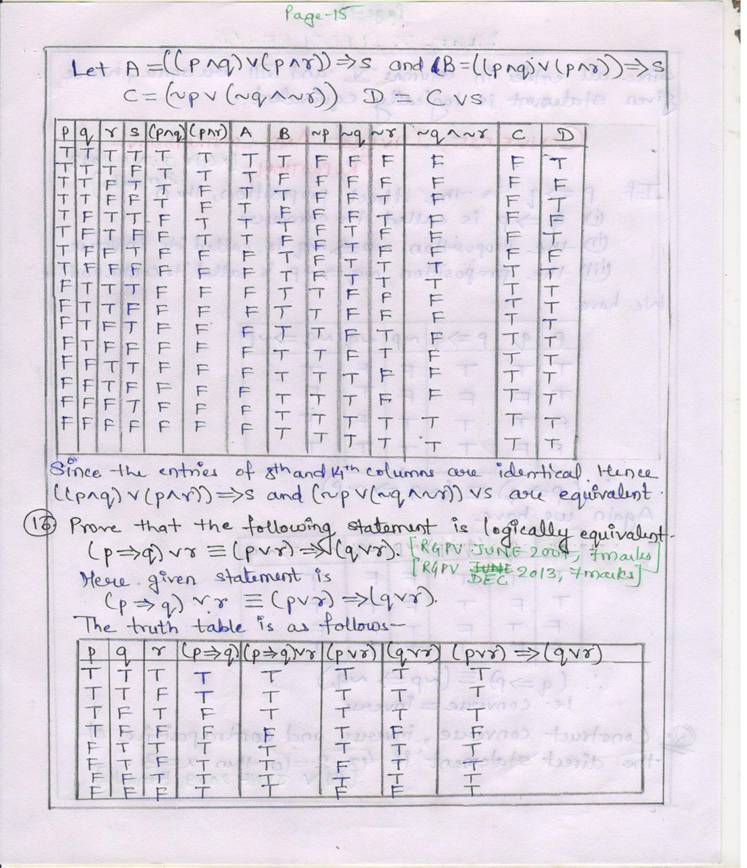 Page-15
Let A = ((p∧q)∨(p∧r))⇒s and B = ((p∧q)∨(p∧r))⇒s
C = (~p ∨ (~q ∧ ~r)) D = C ∨ s
p q r s (p∧q) (p∧r) A B ~p ~q ~r ~q∧~r C D
T T T T T T T T F F F F F T
T T T F T T T F F F F F F F
T T F T T F T T F F T F F T
T T F F T F T F F F T F F F
T F T T F T T T F T F F F T
T F T F F T T F F T F F F F
T F F T F F F T F T T T T T
T F F F F F F T F T T T T T
F T T T F F F T T F F F T T
F T T F F F F T T F F F T T
F T F T F F F T T F T F T T
F T F F F F F T T F T F T T
F F T T F F F T T T F F T T
F F T F F F F T T T F F T T
F F F T F F F T T T T T T T
F F F F F F F T T T T T T T
Since the entries of 8th and 14th columns are identical. Hence
((p∧q)∨(p∧r))⇒s and (~p∨(~q∧~r))∨s are equivalent.
16 Prove that the following statement is logically equivalent.
(p⇒q)∨r ≡ (p∨r)⇒(q∨r). [RGPV JUNE 2007, 7 marks]
[RGPV JUNE DEC 2013, 7 marks]
Here given statement is
(p⇒q)∨r ≡ (p∨r)⇒(q∨r).
The truth table is as follows—
p q r (p⇒q) (p⇒q)∨r (p∨r) (q∨r) (p∨r)⇒(q∨r)
T T T T T T T T
T T F T T T T T
T F T F T T T T
T F F F F T F F
F T T T T T T T
F T F T T F T T
F F T T T T T T
F F F T T F F T